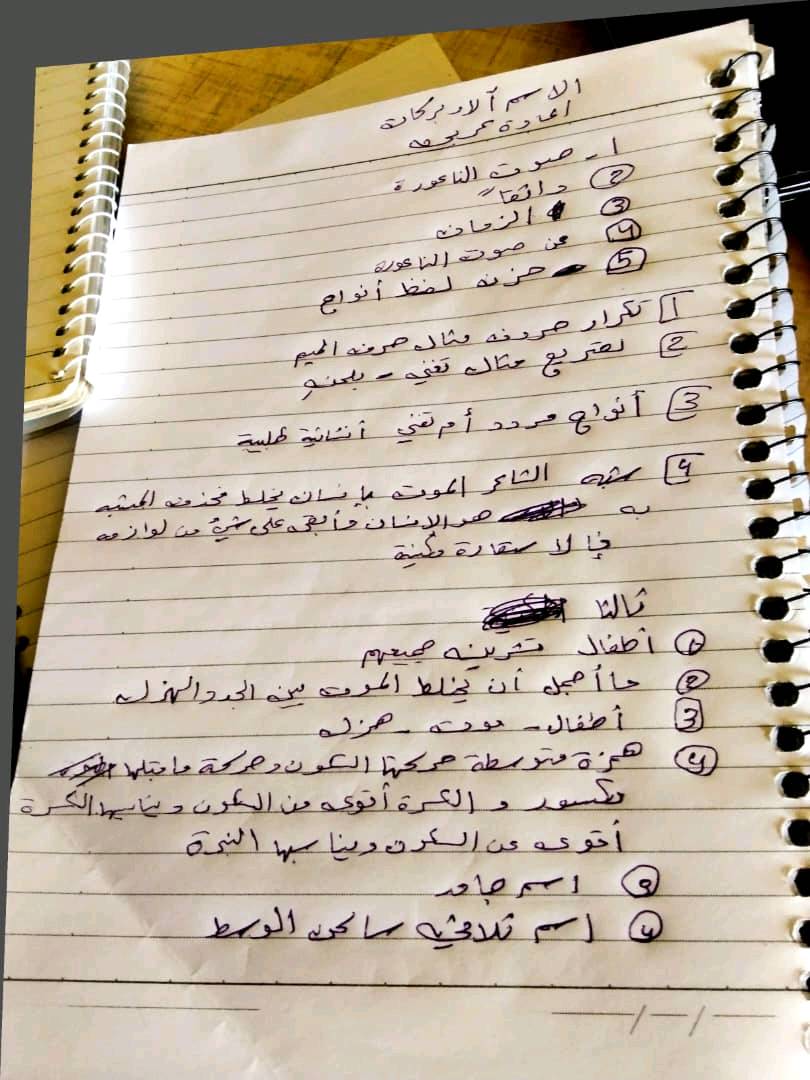 الاسم آلاء بركات
المادة عربي
1 - صوت الناعورة
2 واثقاً
3 الزمان
4 عن صوت الناعورة
5 حزن لفظ أنواح
1 تكرار حروف مثال حرف الميم
2 تصريع مثال تغني - بلحنه
3 أنواح مردد أم تغني أنشائية طلبية
4 شبه الشاعر الموت بإنسان يخلط فحذف المشبه
به هو الإنسان وأبقى على شيء من لوازمه
فالاستعارة مكنية
ثالثا
1 أطفال تشرين جميعهم
2 ما أجمل أن يخلط الموت بين الجد والهزل
3 أطفال - موت - هزل
4 همزة متوسطة حركتها السكون وحركة ما قبلها
مكسور و الكسرة أقوى من السكون ويناسبها الكسرة
أقوى من السكون ويناسبها النبرة
اسم جامد
اسم ثلاثي ساكن الوسط